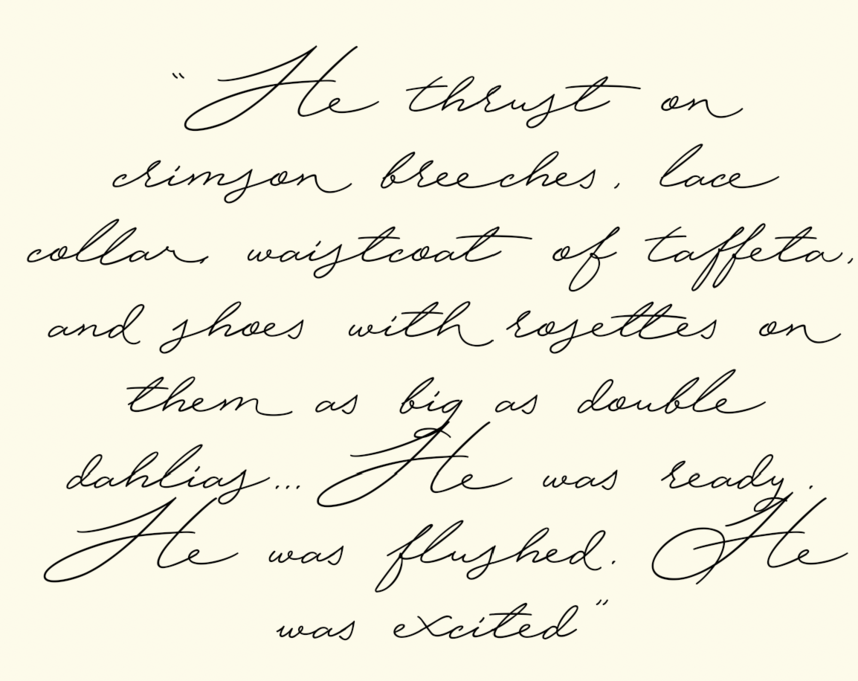 "He thrust on
crimson breeches, lace
collar, waistcoat of taffeta,
and shoes with rosettes on
them as big as double
dahlias... He was ready.
He was flushed. He
was excited"